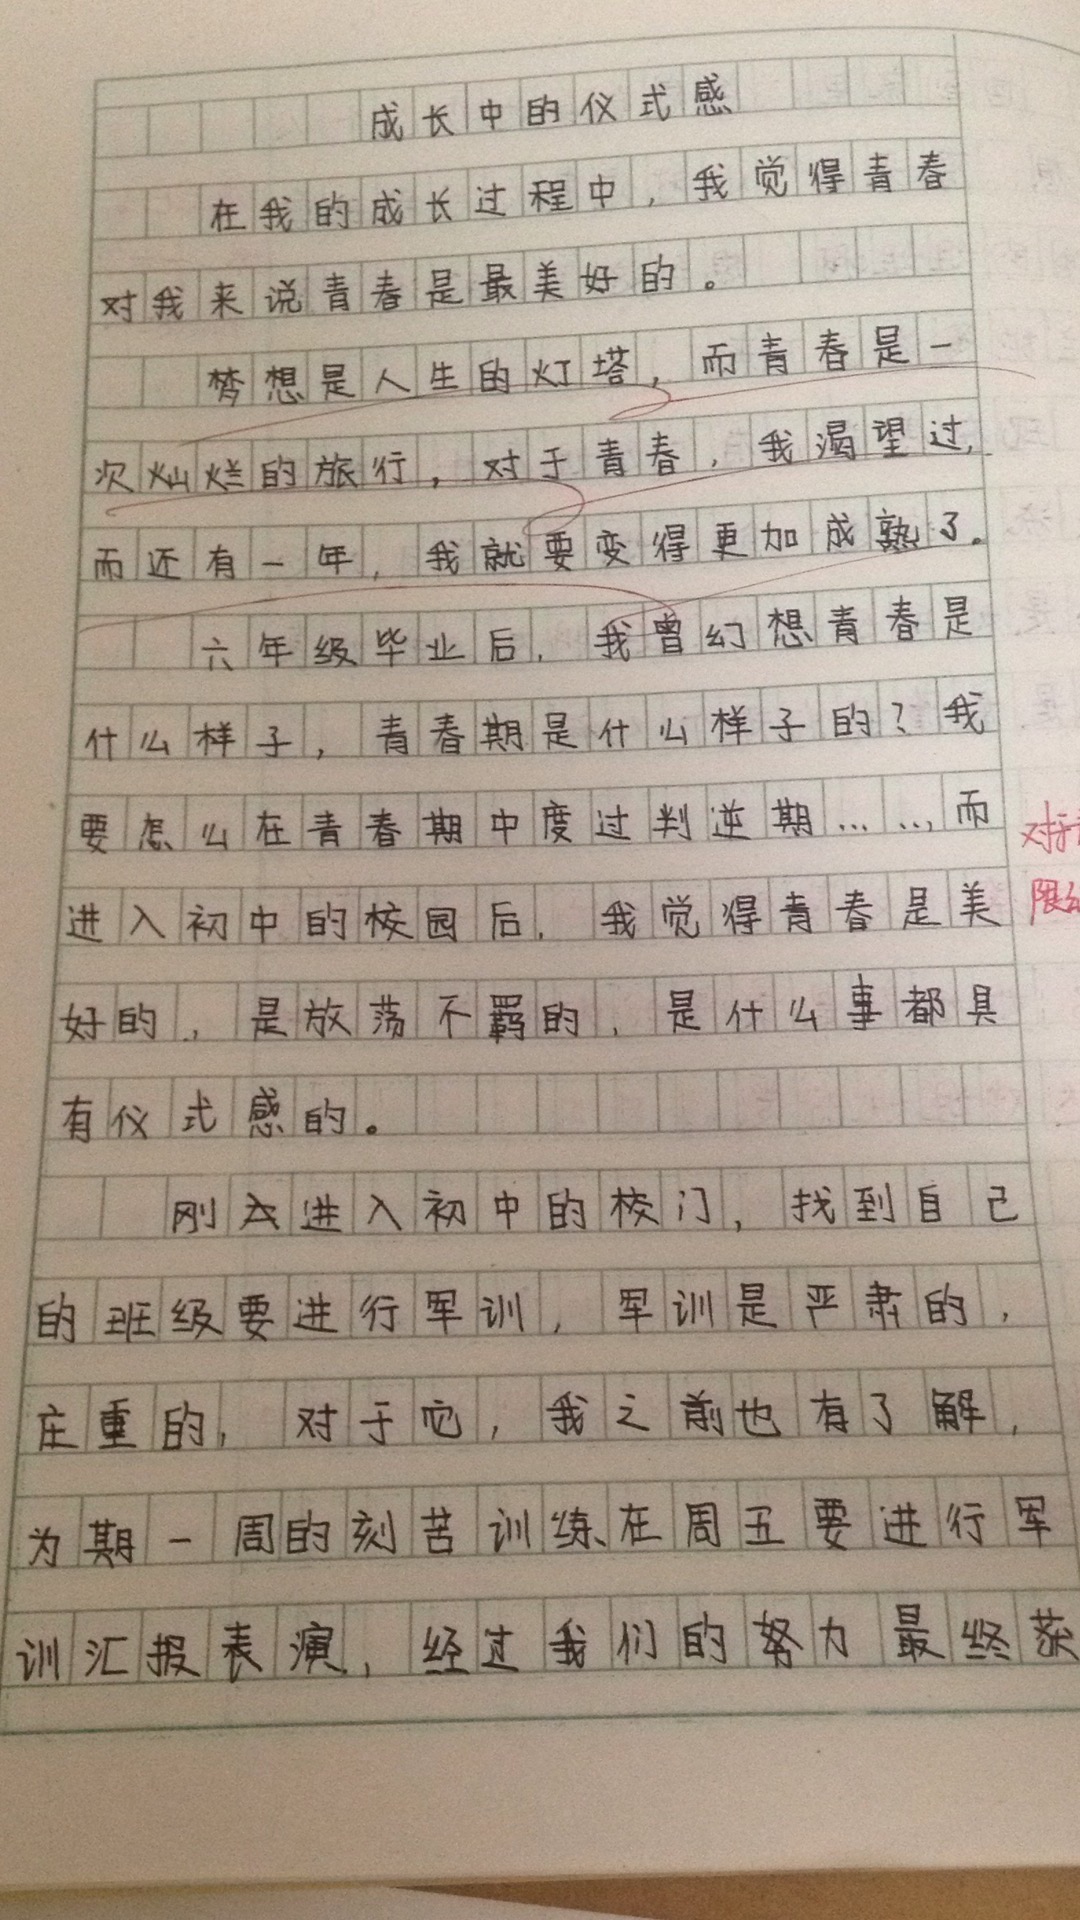 成长中的仪式感
在我的成长过程中，我觉得青春
对我来说青春是最美好的。
梦想是人生的灯塔，而青春是一
次灿烂的旅行，对于青春，我渴望过，
而还有一年，我就要变得更加成熟了。
六年级毕业后，我曾幻想青春是
什么样子，青春期是什么样子的？我
要怎么在青春期中度过判逆期……，而
进入初中的校园后，我觉得青春是美
好的，是放荡不羁的，是什么事都具
有仪式感的。
刚进入初中的校门，找到自己
的班级要进行军训，军训是严肃的，
庄重的，对于它，我之前也有了解，
为期一周的刻苦训练、在周五要进行军
训汇报表演，经过我们的努力最终获
对于
限